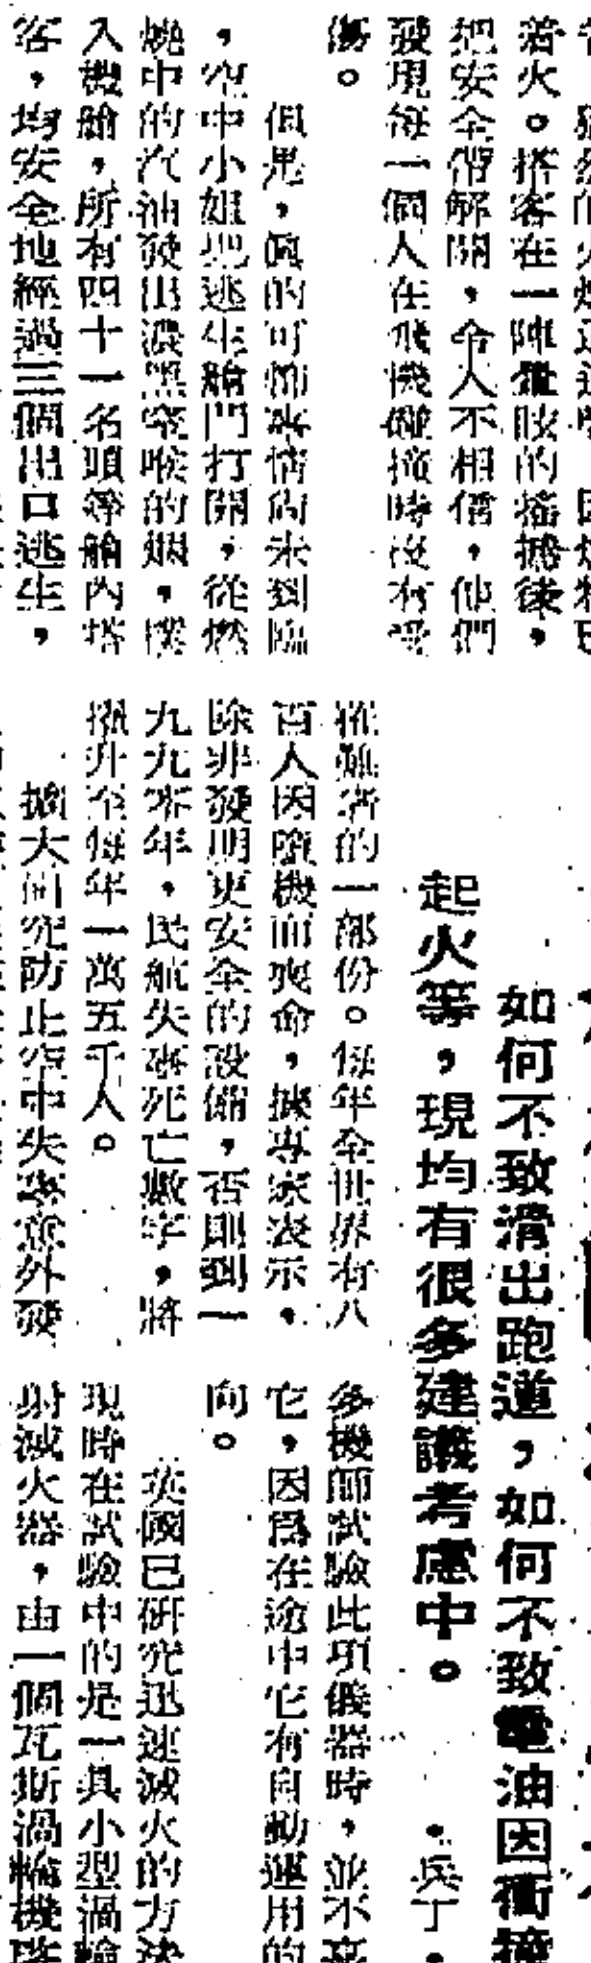 着火。搭客在一陣震駭的搖撼後,
把安全帶解開,令人不相信,他們
發現每一個人在飛機碰撞時沒有受
傷。
但是,眞的可怖事情尚未到臨
,空中小姐把逃生艙門打開,從燃
燒中的汽油發出濃黑窒喉的烟,撲
入機艙,所有四十一名頭等艙內搭
客,均安全地經過三個出口逃生,
如何不致滑出跑道,如何不致電油因衝撞
起火等,現均有很多建議考慮中。 ·兵丁·
罹難者的一部份。每年全世界有八
百人因墮機而喪命,據專家表示,
除非發明更安全的設備,否則到一
九九零年,民航失事死亡數字,將
擢升至每年一萬五千人。
擴大研究防止空中失事意外發
多機師試驗此項儀器時,並不喜
它,因爲在途中它有自動運用的
向。
英國已研究迅速滅火的方法
現時在試驗中的是一具小型渦輪
射滅火器,由一個瓦斯渦輪機改